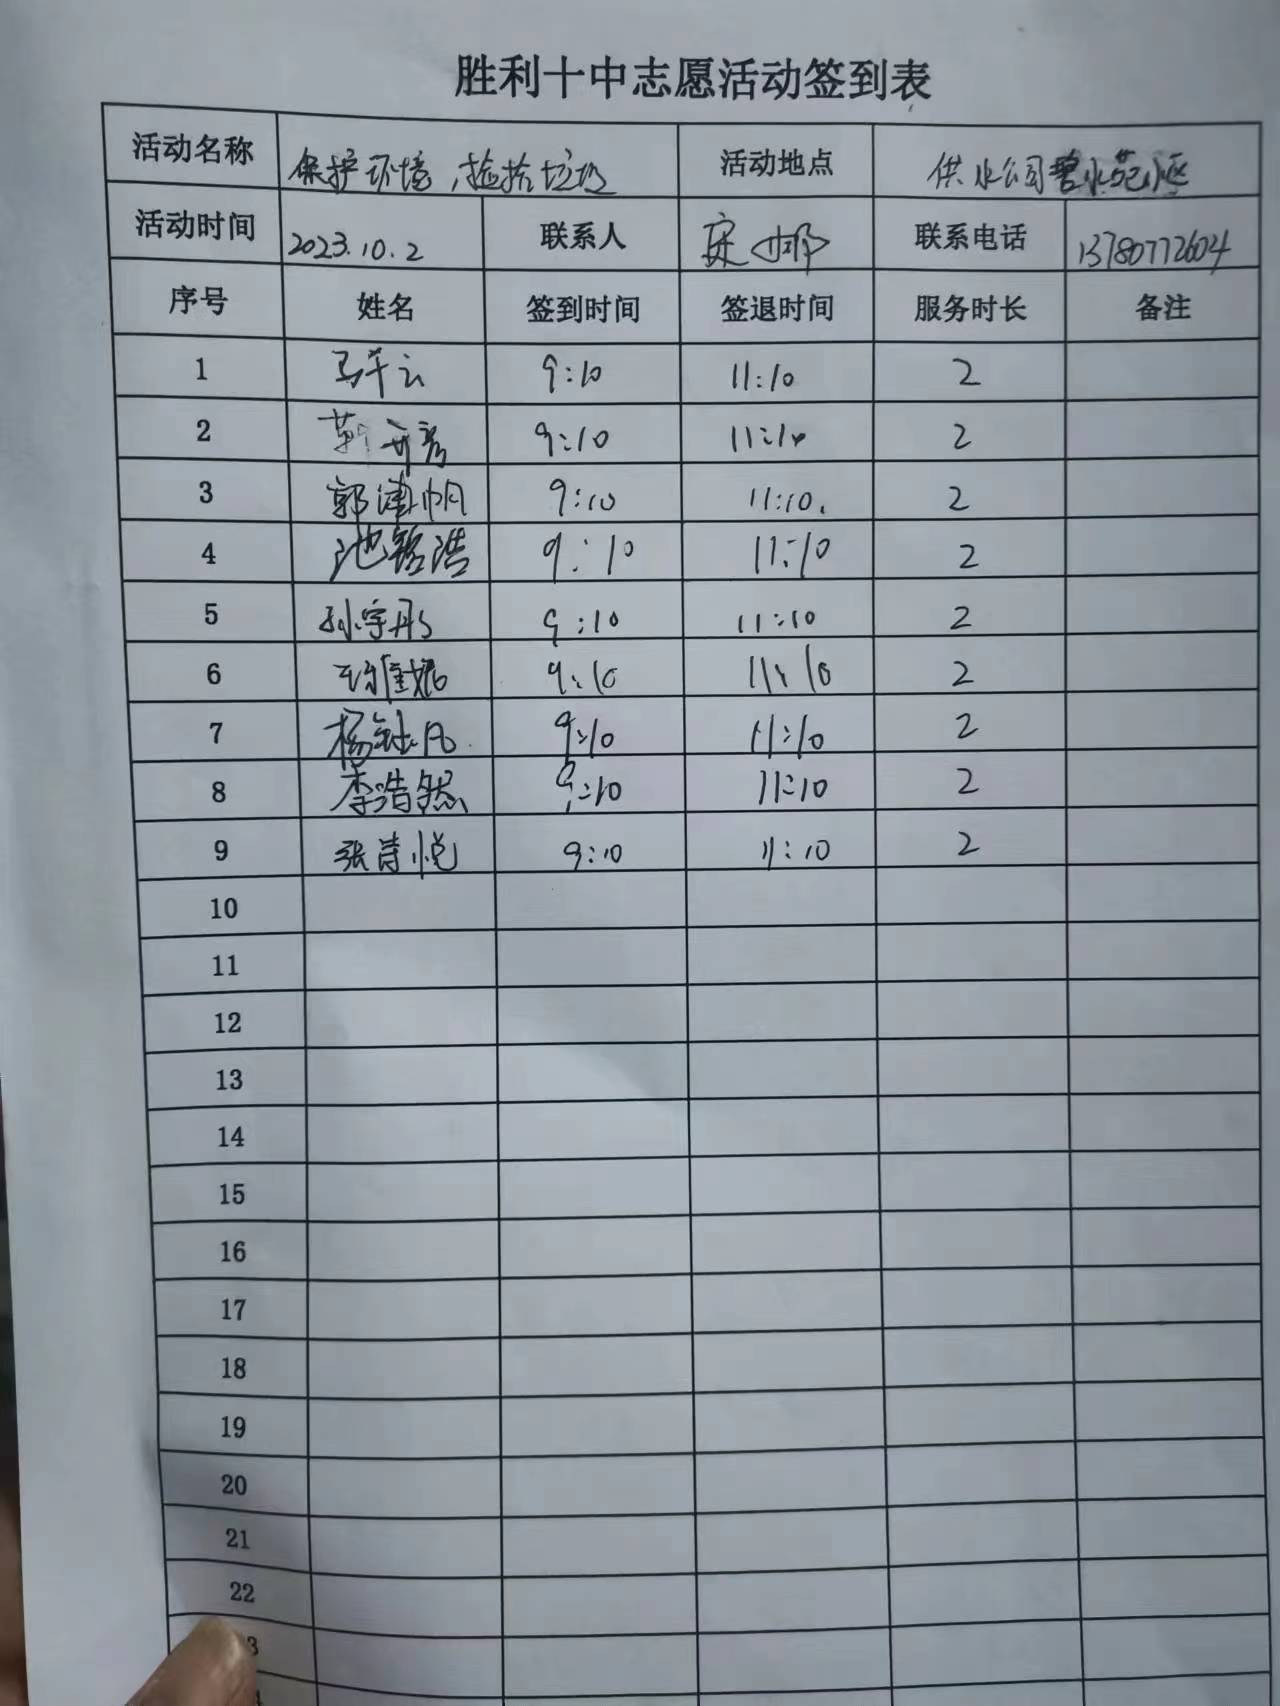 胜利十中志愿活动签到表
活动名称 保护环境，捡拾垃圾 活动地点 供水公司碧水苑小区
活动时间 2023.10.2 联系人 宋娜 联系电话 13780772604
序号 姓名 签到时间 签退时间 服务时长 备注
1 马千云 9:10 11:10 2
2 9:10 11:10 2
3 郭津帆 9:10 11:10. 2
4 池铭浩 9:10 11:10 2
5 孙宇彤 9:10 11:10 2
6 9:10 11:10 2
7 杨钰凡 9:10 11:10 2
8 李浩然 9:10 11:10 2
9 张诗悦 9:10 11:10 2
10
11
12
13
14
15
16
17
18
19
20
21
22
3